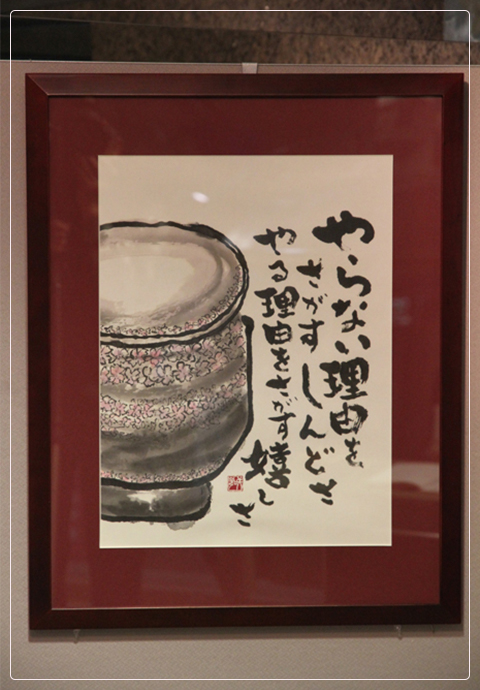 やらない理由を
さがすしんどさ
やる理由をさがす嬉しさ